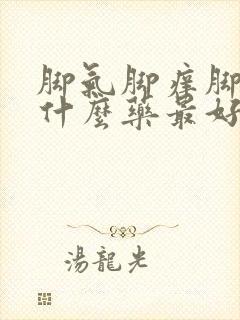 脚氣脚癢脚
什麼藥最好
湯龍光